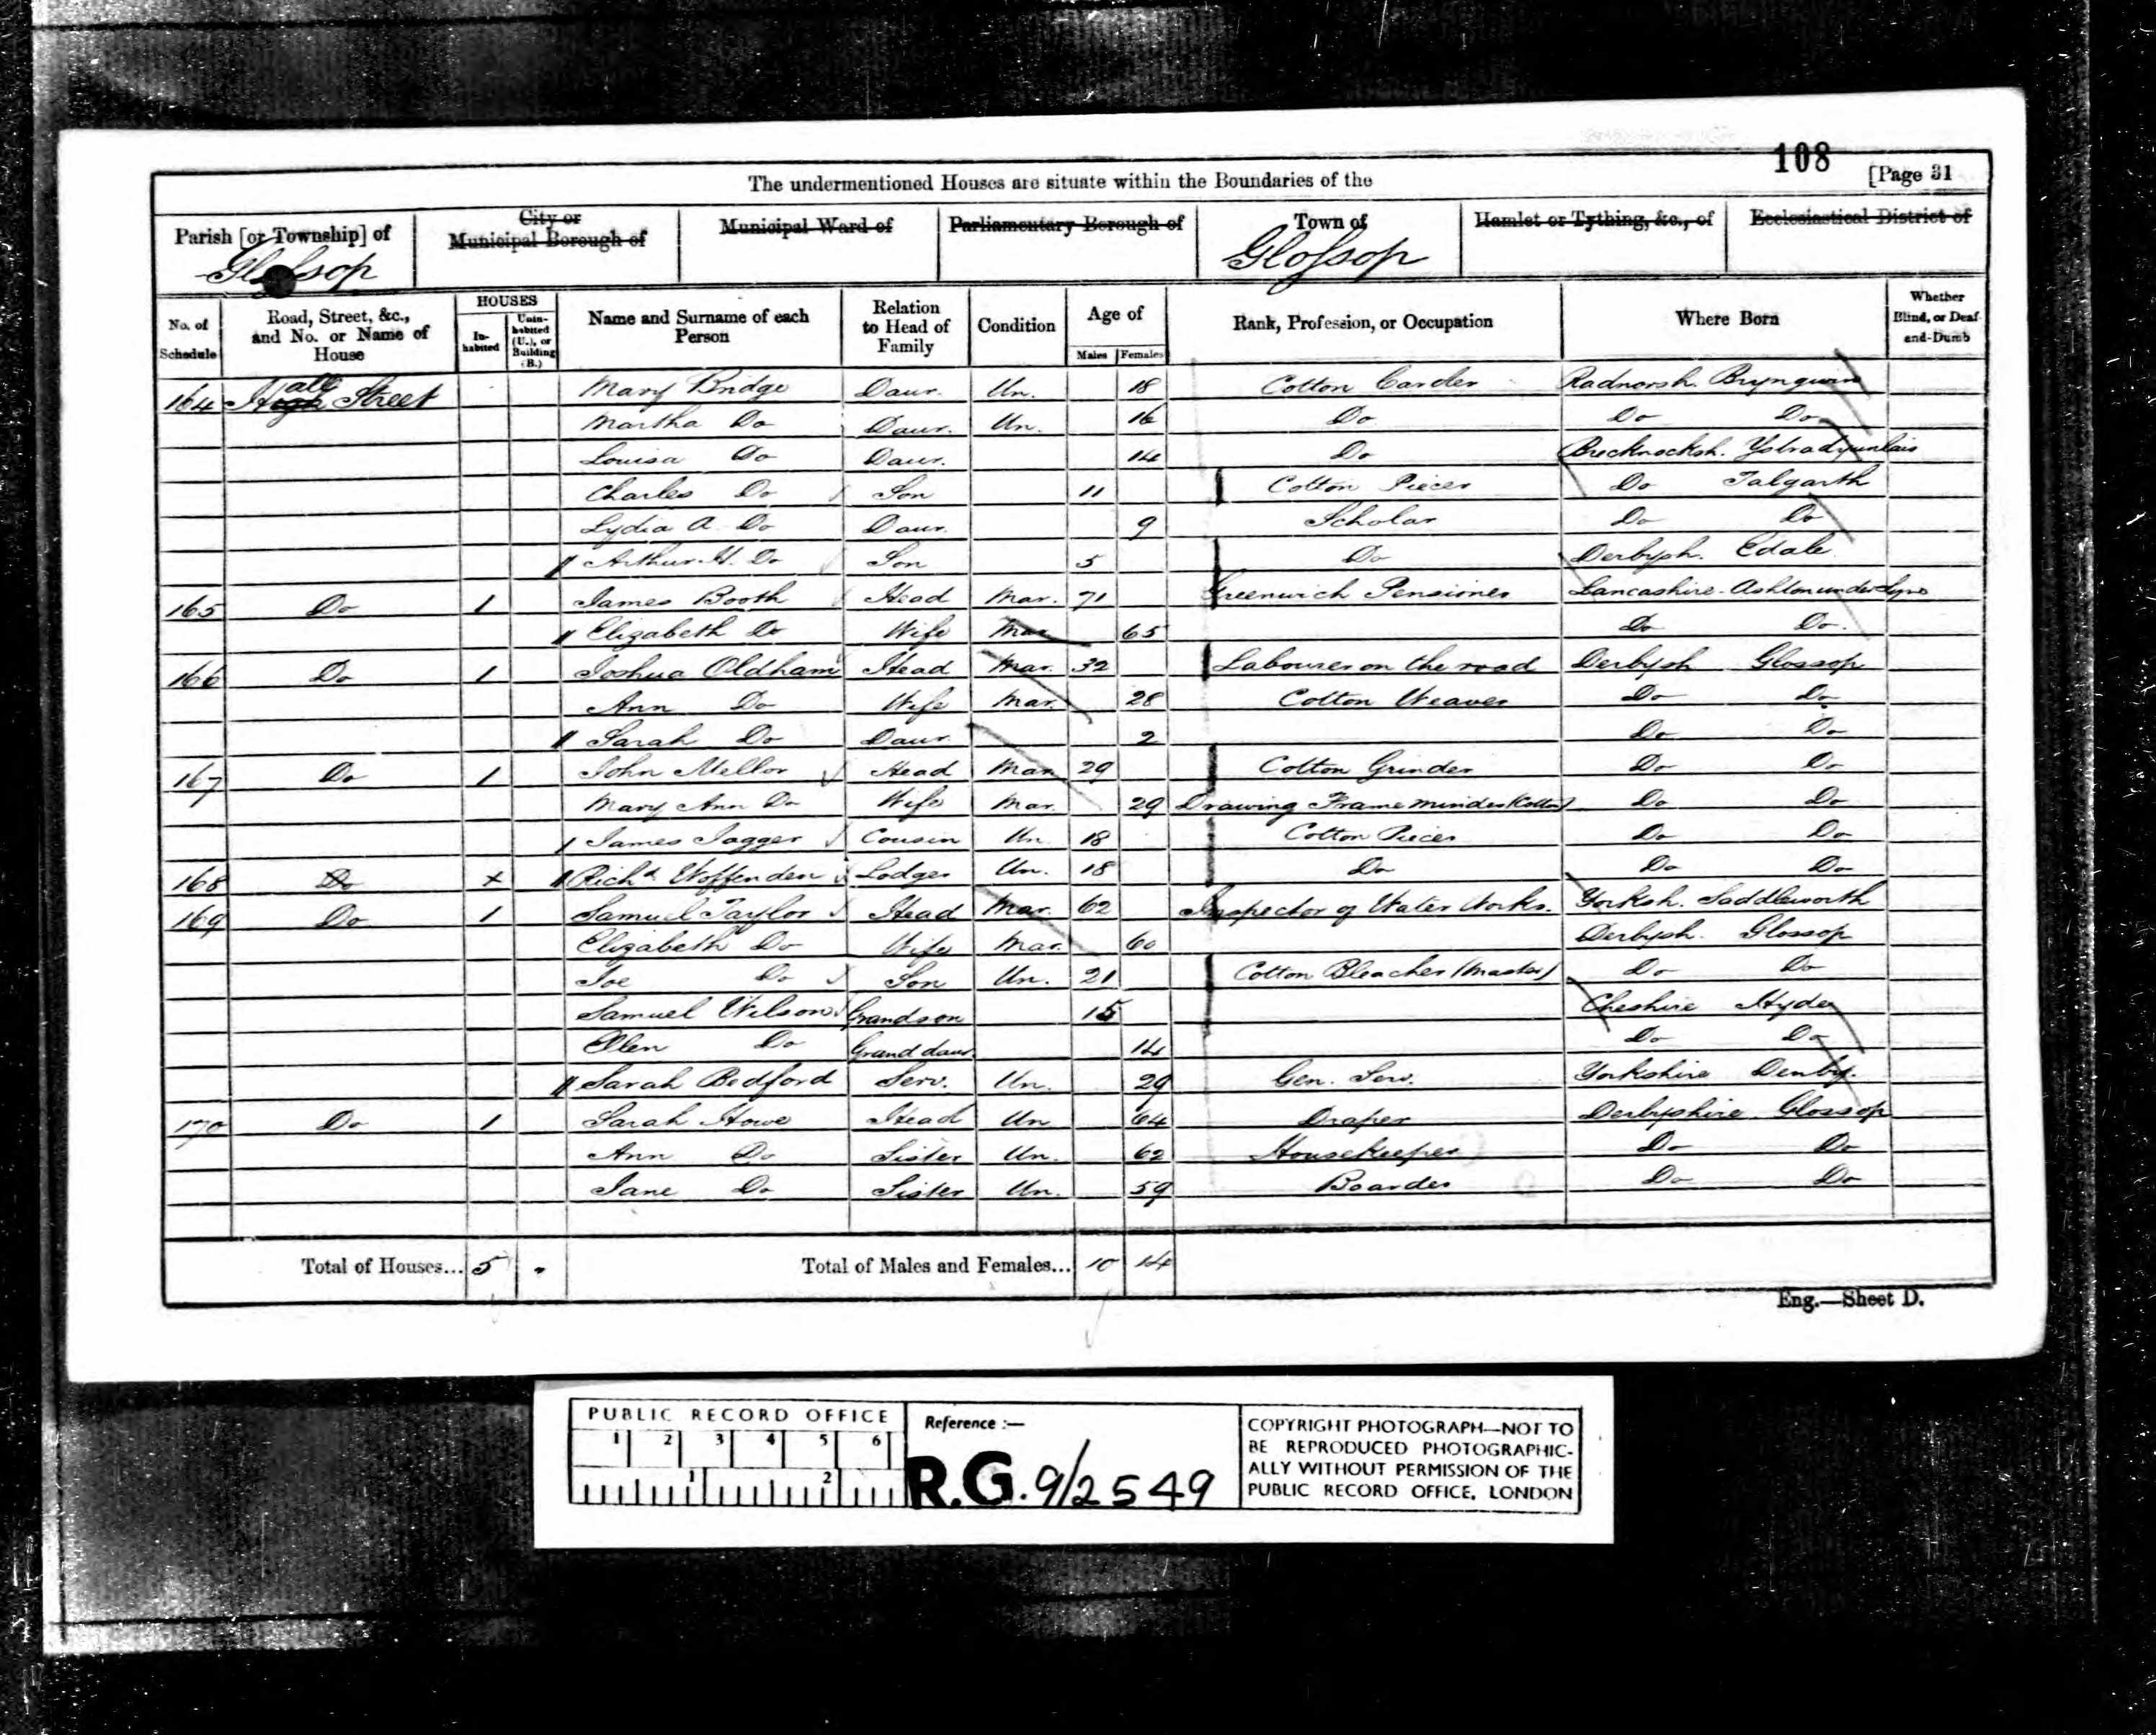 108
[Page 31
The undermentioned Houses are situate within the Boundaries of the
Parish [or Township] of City or Municipal Borough of Municipal Ward of Parliamentary Borough of Town of Hamlet or Tything, &c., of Ecclesiastical District of
Glossop Glossop
No. of Schedule Road, Street, &c., and No. or Name of House HOUSES In-habited Unin-habited (U.), or Building (B.) Name and Surname of each Person Relation to Head of Family Condition Age of Males Females Rank, Profession, or Occupation Where Born Whether Blind, or Deaf-and-Dumb
164 Hall Street Mary Bridge Daur. Un. 18 Cotton Carder Radnorsh. Bryngwin
Martha Do Daur. Un. 16 Do Do Do
Louisa Do Daur. 14 Do Brecknocksh. Ystradgunlais
Charles Do Son 11 Cotton Piecer Do Talgarth
Lydia A. Do Daur. 9 Scholar Do Do
Arthur H. Do Son 5 Do Derbysh. Edale
165 Do 1 James Booth Head Mar. 71 Greenwich Pensioner Lancashire - Ashton under Lyne
Elizabeth Do Wife Mar 65 Do Do.
166 Do 1 Joshua Oldham Head Mar. 32 Labourer on the road Derbysh Glossop
Ann Do Wife Mar. 28 Cotton Weaver Do Do
Sarah Do Daur. 2 Do Do
167 Do 1 John Mellor Head Mar 29 Cotton Grinder Do Do
Mary Ann Do Wife Mar. 29 Drawing Frame minder (Cotton) Do Do
James Jagger Cousin Un. 18 Cotton Piecer Do Do
168 Do x Richd. Woffenden Lodger Un. 18 Do Do Do
169 Do 1 Samuel Taylor Head Mar. 62 Inspector of Water Works. Yorksh. Saddleworth
Elizabeth Do Wife Mar. 60 Derbysh. Glossop
Joe Do Son Un. 21 Cotton Bleacher (Master) Do Do
Samuel Wilson Grandson 15 Cheshire Hyde
Ellen Do Grand daur. 14 Do Do
Sarah Bedford Serv. Un. 29 Gen. Serv. Yorkshire Denby.
170 Do 1 Sarah Howe Head Un 64 Draper Derbyshire Glossop
Ann Do Sister Un. 62 Housekeeper Do Do
Jane Do Sister Un. 59 Boarder Do Do
Total of Houses... 5 Total of Males and Females... 10 14
Eng.—Sheet D.
PUBLIC RECORD OFFICE
1 2 3 4 5 6
1 2
Reference :—
R.G. 9/2549
COPYRIGHT PHOTOGRAPH—NOT TO
BE REPRODUCED PHOTOGRAPHIC-
ALLY WITHOUT PERMISSION OF THE
PUBLIC RECORD OFFICE, LONDON